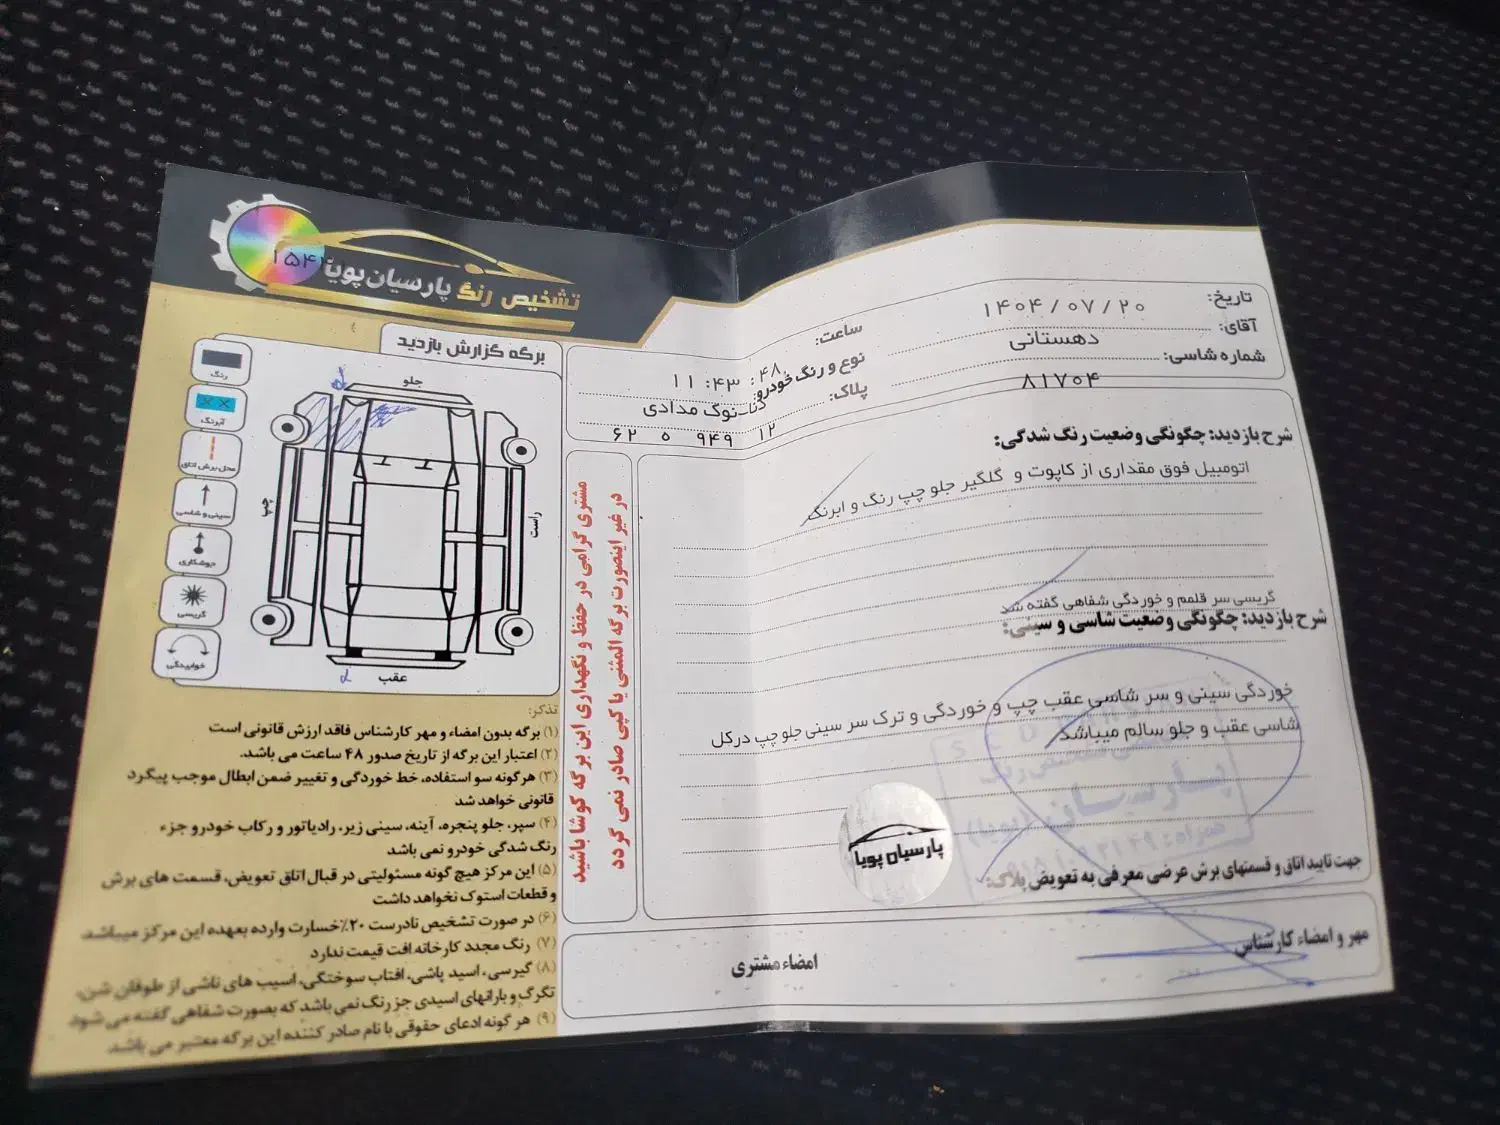 تشخیص رنگ پارسیان پویا
برگه گزارش بازدید
تاریخ: ۱۴۰۴/۰۷/۲۰
آقای: دهستانی
شماره شاسی: ۸۱۷۰۴
ساعت: ۱۱:۴۳:۴۸
نوع و رنگ خودرو: دنا-نوک مدادی
پلاک: ۱۲ ۹۴۹ ۵ ۶۲
رنگ
آبرنگ
محل برش اتاق
سینی و شاسی
جوشکاری
گریسی
خوابیدگی
جلو
چپ
راست
عقب
شرح بازدید: چگونگی وضعیت رنگ شدگی:
اتومبیل فوق مقداری از کاپوت و گلگیر جلو چپ رنگ و ابرنگ
گریسی سر قلمم و خوردگی شفاهی گفته شد
شرح بازدید: چگونگی وضعیت شاسی و سینی:
خوردگی سینی و سر شاسی عقب چپ و خوردگی و ترک سر سینی جلو چپ درکل
شاسی عقب و جلو سالم میباشد
پارسیان پویا
جهت تایید اتاق و قسمتهای برش عرضی معرفی به تعویض پلاک:
مهر و امضاء کارشناس
امضاء مشتری
مشتری گرامی در حفظ و نگهداری این برگه کوشا باشید
در غیر اینصورت برگه المثنی یا کپی صادر نمی گردد
تذکر:
۱) برگه بدون امضاء و مهر کارشناس فاقد ارزش قانونی است
۲) اعتبار این برگه از تاریخ صدور ۴۸ ساعت می باشد.
۳) هرگونه سو استفاده، خط خوردگی و تغییر ضمن ابطال موجب پیگرد
قانونی خواهد شد
۴) سپر، جلو پنجره، آینه، سینی زیر، رادیاتور و رکاب خودرو جزء
رنگ شدگی خودرو نمی باشد
۵) این مرکز هیچ گونه مسئولیتی در قبال اتاق تعویض، قسمت های برش
و قطعات استوک نخواهد داشت
۶) در صورت تشخیص نادرست ۲۰٪ خسارت وارده بعهده این مرکز میباشد.
۷) رنگ مجدد کارخانه افت قیمت ندارد
۸) گیرسی، اسید پاشی، افتاب سوختگی، اسیب های ناشی از طوفان شن،
تگرگ و بارانهای اسیدی جز رنگ نمی باشد که بصورت شفاهی گفته می شود
۹) هر گونه ادعای حقوقی با نام صادر کننده این برگه معتبر می باشد